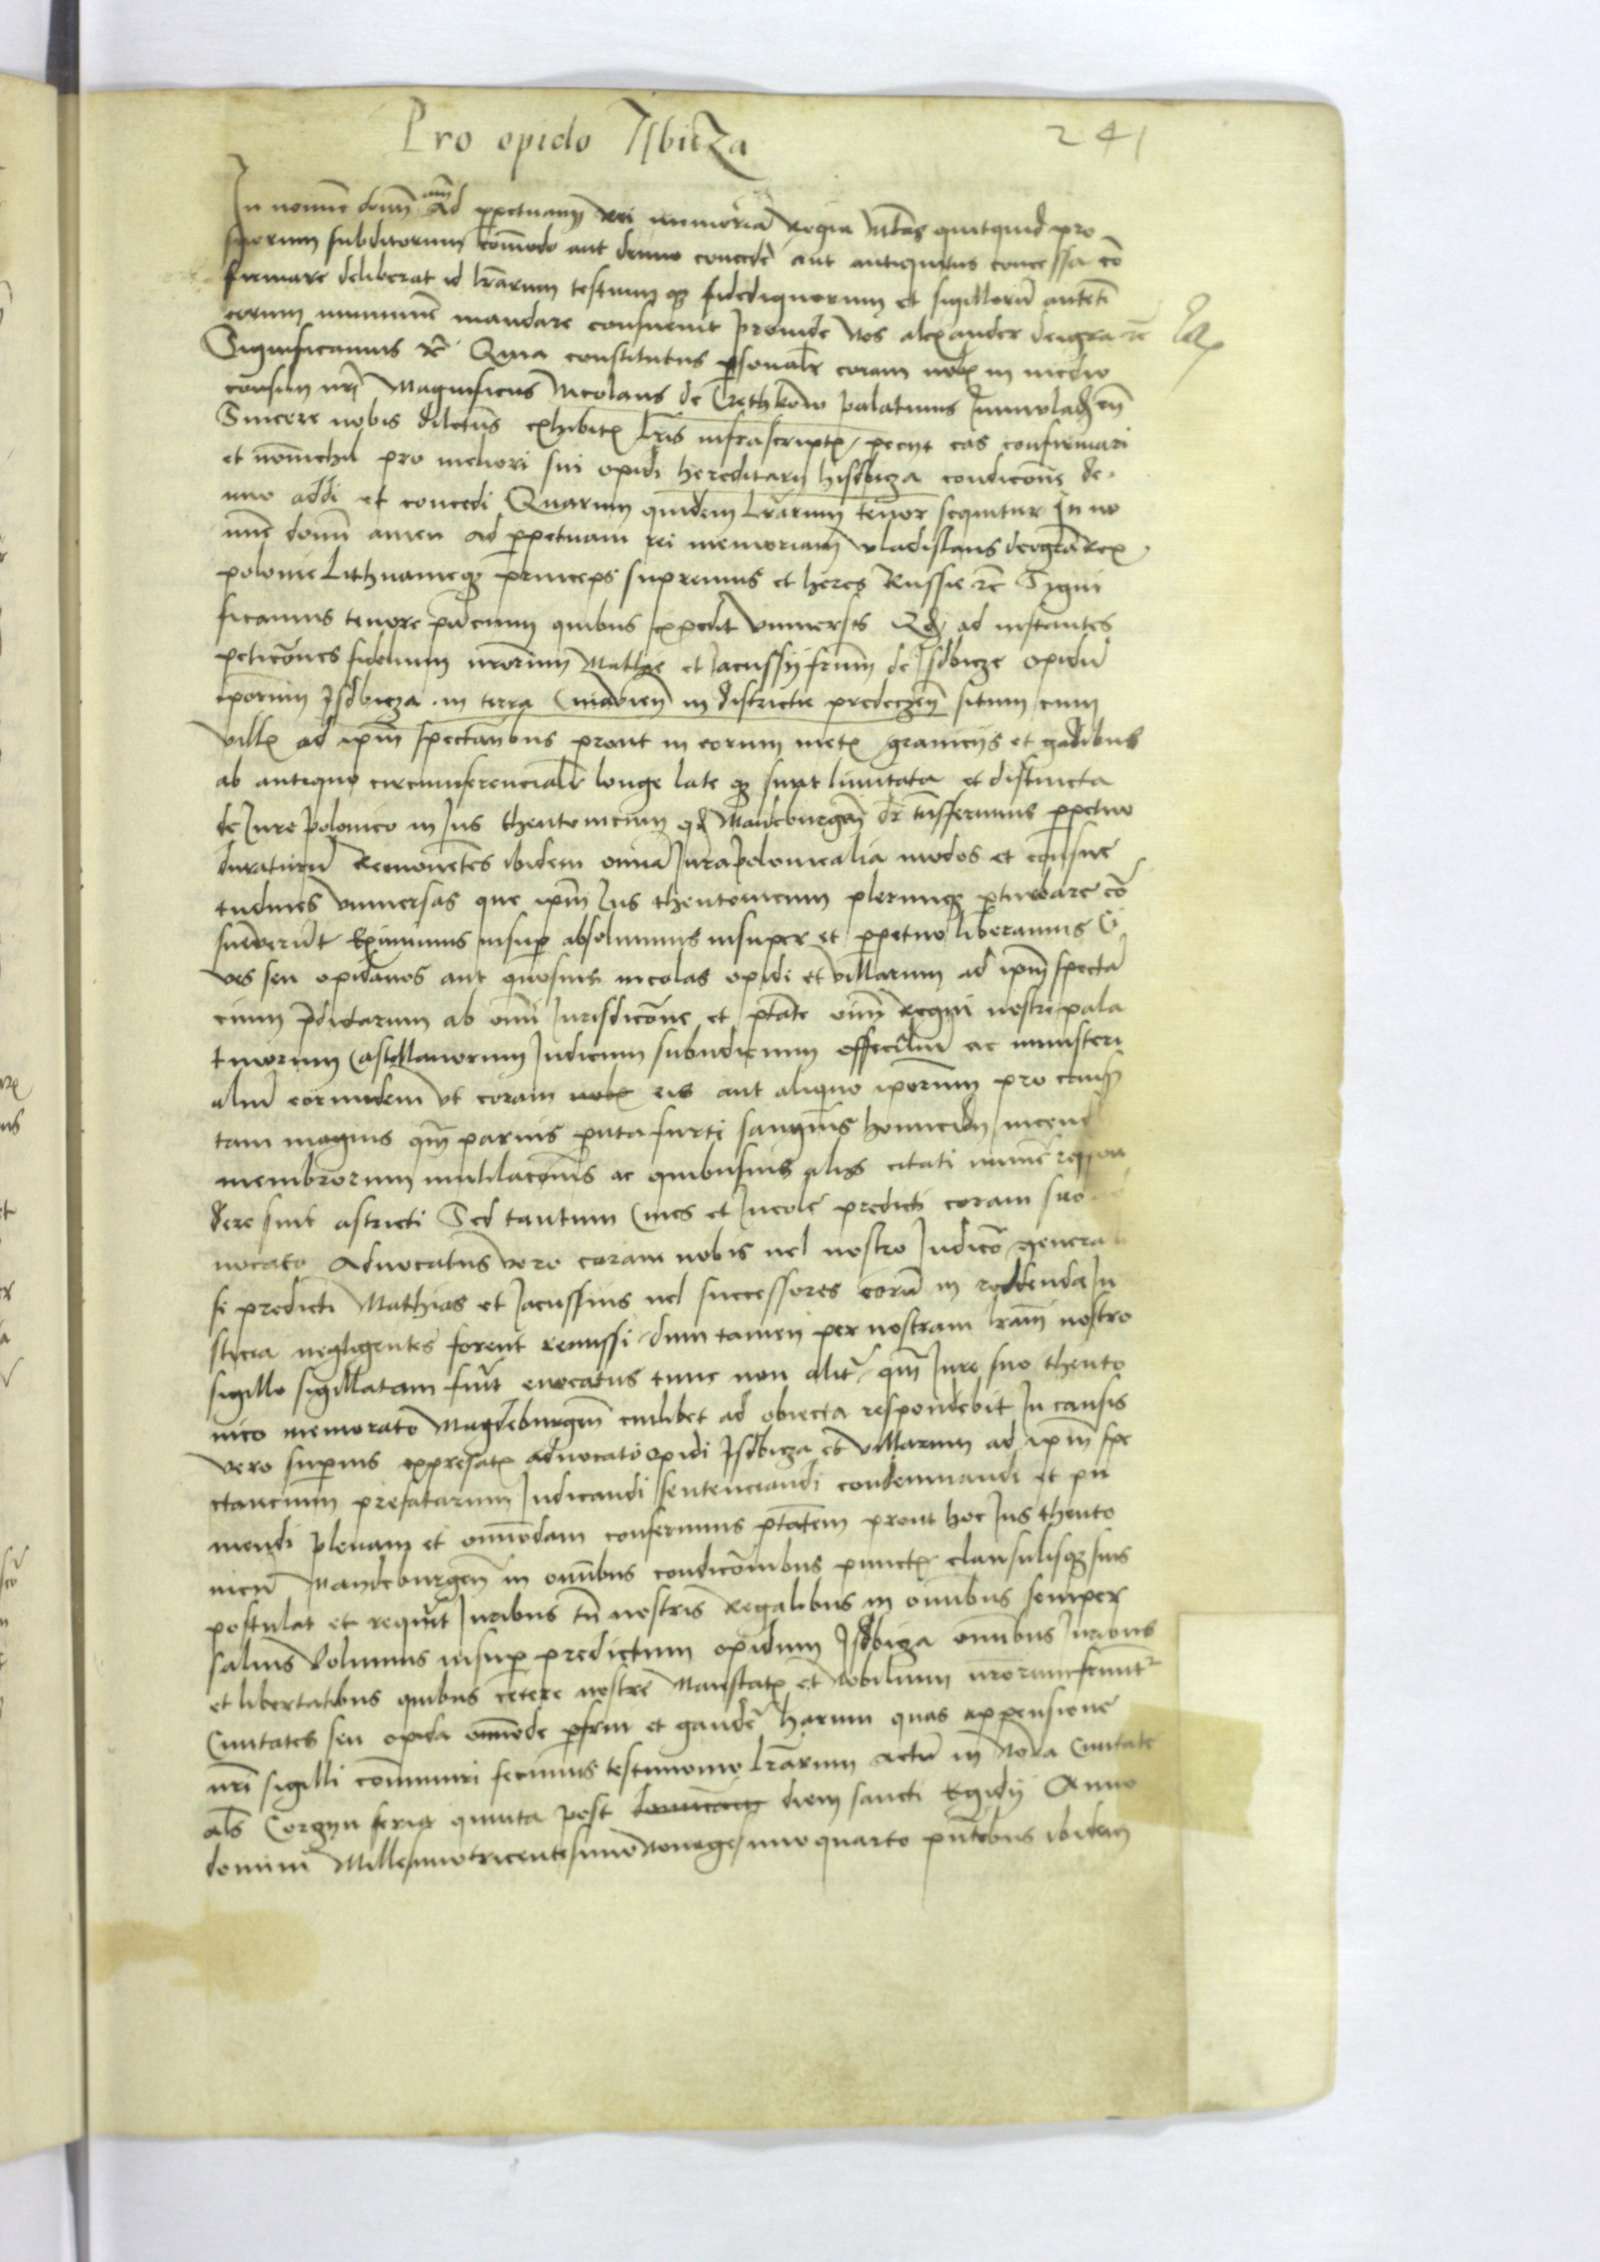 Pro opido Isbicza
241
In nomine domi am̄ Ad ppetuam rei memoriā Regia Mtās quitquid pro
suorum subditorum comodo aut denuo concede aut antiquitus concessa cō
firmare deliberat id lrārum testium qz fidedignorum et sigillorū autenti
corum munimine mandare consuevit Proinde Nos Alexander dei gra rc̄
Significamus rc̄ Quia constitutus psonalr coram nobis in medio
consilii nri Magnificus Nicolaus de Crethkow palatinus Juniuladisl en̄
Sincere nobis dilectus exhibitis lris infrascriptis peciit eas confirmari
et nonnichil pro meliori sui opidi hereditarij hisdbicza condicōne de
nuo addi et concedi Quarum quidem lrārum tenor sequitur In no
mine domī amen Ad ppetuam rei memoriam Vladislaus dei gra Rex
polonie Lithuanieqz princeps supremus et heres Russie rc̄ Signi
ficamus tenore pncium quibus expedit vniversis Qd ad instantes
peticōnes fidelium nrōrum Mathie et Jacussij frum de Isdbicze opidū
ipōrum Isdbicza in terra Cuiavien in districtu predeczen situm cum
villis ad ipm spectantibus prout in eorum metis granicijs et gadibus
ab antiquo circumferencialr longe late qz sunt limitata et distincta
de Jure polonico in Jus theutonicum qd Maideburgen dr tūsferimus ppetuo
duraturū Removentes ibidem omīa Jura polonicalia modos et consue
tudines vniversas que ipm Jus theutonicum plerumqz pturbare cō
sueverūt Eximimus insup absolvimus insuper et ppetuo liberamus Ci
ves seu opidanos aut quosvis incolas opidi et villarum ad ipm specta
cium pdictarum ab omni Jurisdicōne et ptate oim Regni nostri pala
tinorum Castellanorum Judicum subiudicum officialiū ac ministeri
aliū eorundem vt coram eis aut aliquo ipōrum pro causis
tam magnis qm parvis puta furti sanguis homicidij incend
membrorum mutilacōnis ac quibusvis alijs citati minime respon
dere sint astricti Sed tantum Cives et Incole predicti coram suo ad
vocato Advocatus vero coram nobis vel nostro Judicō genera
si predicti Mathias et Jacussius vel successores eorū in reddenda Ju
sticia negligentes forent remissi dum tamen per nostram lram nostro
sigillo sigillatam fuit evocatus tunc non alitr qm Jure suo theuto
nico memorato Magdeburgen cuilibet ad obiecta respondebit In causis
vero superius expressatis advocato opidi Isdbicza et villarum ad ipm spe
ctancium prefatarum Judicandi sentenciandi condemnandi et pu
niendi plenam et omnimodam conferimus ptatem prout hoc Jus theuto
nicū Maydeburgen in omnibus condicōnibus punctis clausulisqz suis
postulat et requirit Juribus tn nostris Regalibus in omnibus semper
salvis Volumus insup predictum opidum Isdbicza omnibus Juribus
et libertatibus quibus cetere nostre Maiestatis et Nobilium nrōrum feruntr
Civitates seu opida omnimode pfrui et gaudē harum quas appensione
nri sigilli communiri fecimus testimonio lrārum Actū in Nova Civitate
als Corgyn feria quinta post diem sancti Egidij Anno
domini Millesimotricentesimo Nonagesimo quarto pntibus ibidem